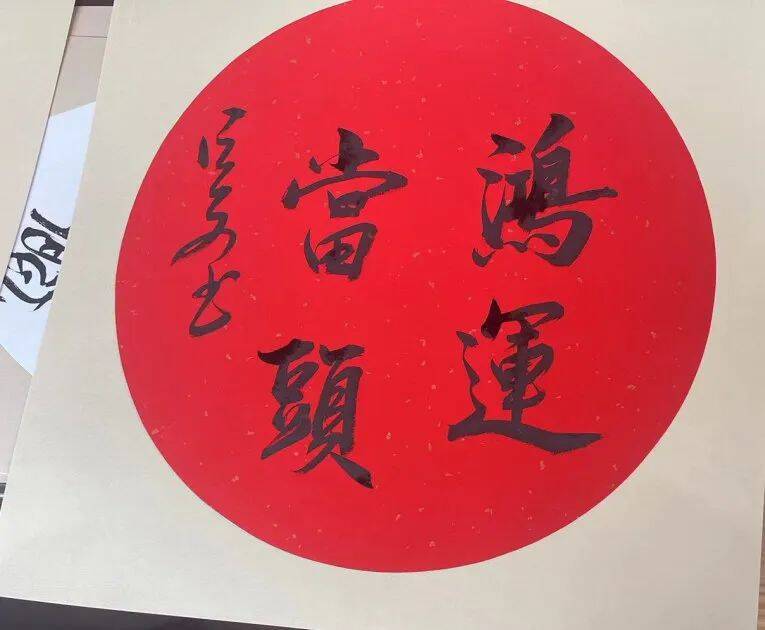 鴻運
當頭